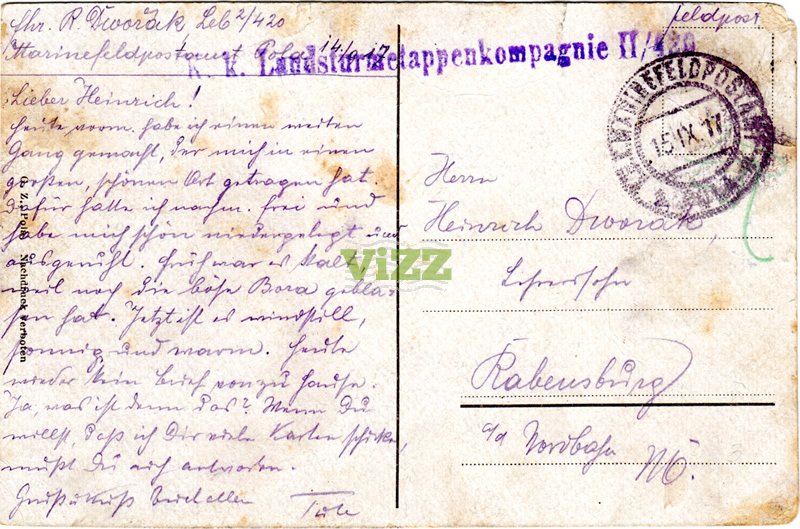 Chr. R. Dwořák, Leb 2/420
Marinefeldpostamt Pola 14./9.17
Feldpost
K. k. Landsturmetappenkompagnie II/420
K.u.K. MARINEFELDPOSTAMT
15.IX.17
POLA
Lieber Heinrich!
Heute vorm. habe ich einen weiten
Gang gemacht, der mich in einen
großen, schönen Ort getragen hat.
Dafür hatte ich nachm. frei und
habe mich schön niedergelegt und
ausgeruht. Früh war es kalt,
weil noch die böse Bora gebla-
sen hat. Jetzt ist es windstill,
sonnig und warm. Heute
wieder kein Brief von zu Hause.
Ja, was ist denn das? Wenn Du
willst, daß ich Dir viele Karten schicke,
mußt Du auch antworten.
Gruß u. Kuß Euch allen
G. Z. Pola Nachdruck verboten
Herrn
Heinrich Dwořák,
Lehrerssohn
Rabensburg
a/d Nordbahn
NÖ.
vizz